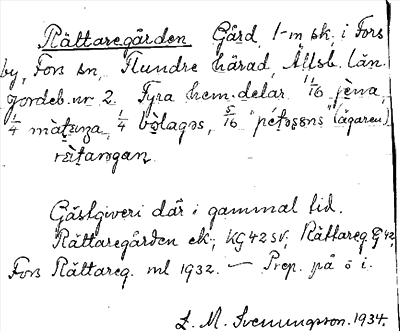 Rättaregården Gård, 1-m sk, i Fors
by, Fors sn, Flundre härad, Älfsb. län.
Jordeb.nr 2 Fyra hem.delar 11/16 jèna,
1/4 màtsza, 1/4 bòlagəs, 5/16 "pétəşəns" (ägaren)
rätangən
Gästgiveri där i gammal tid.
Rättaregården ek; KG42SV, Rättareg G42,
Fors Rättareg. ml 1932. — Prep. på ö i.
L. M. Svenungsson. 1934.